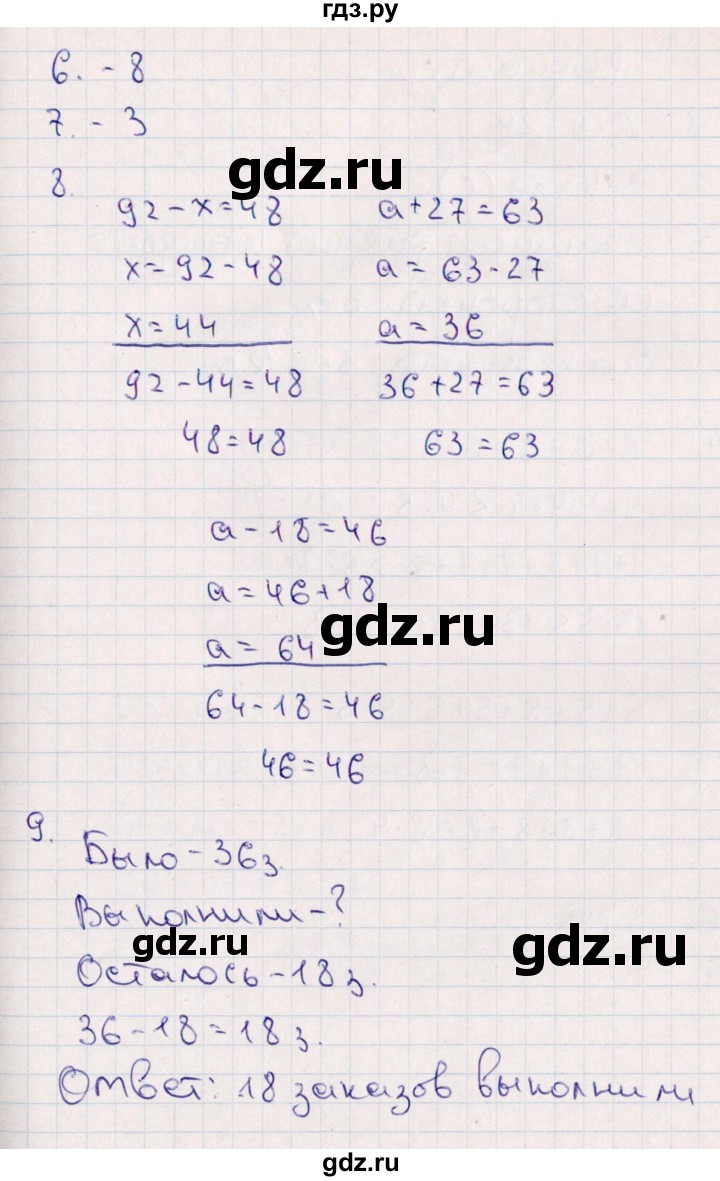 гдз.ру
6. - 8
7. - 3
gdz.ru
8.
92 - x = 48
x = 92 - 48
x = 44
92 - 44 = 48
48 = 48
a + 27 = 63
a = 63 - 27
a = 36
36 + 27 = 63
63 = 63
a - 18 = 46
a = 46 + 18
gdz.ru
a = 64
64 - 18 = 46
46 = 46
9.
Было - 36 з.
Выполнили - ?
gdz.ru
gdz.ru
Осталось - 18 з.
36 - 18 = 18 з.
Ответ: 18 заказов выполнили
gdz.ru